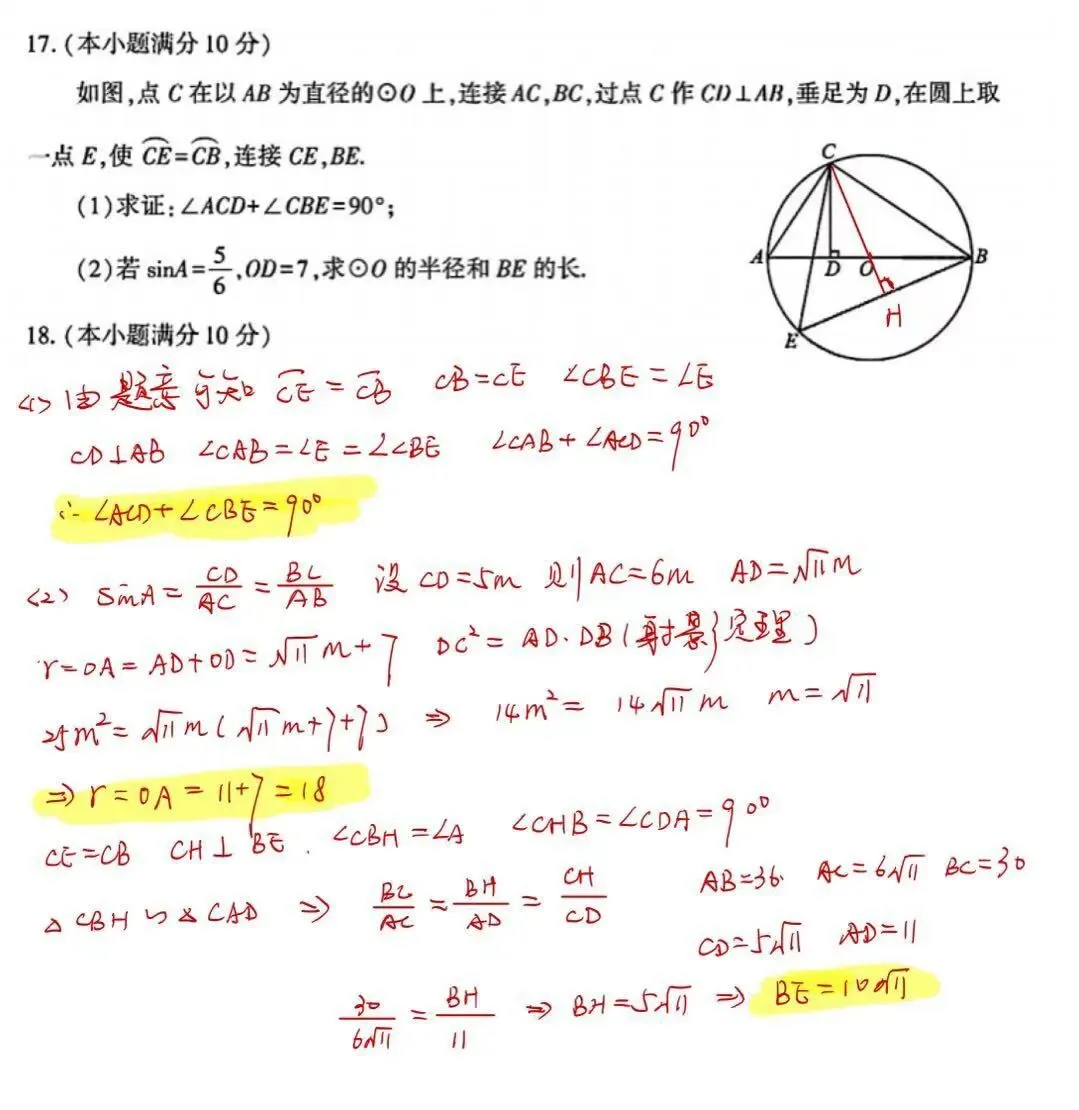 17. (本小题满分 10 分)
如图,点 C 在以 AB 为直径的⊙O 上,连接 AC,BC,过点 C 作 CD⊥AB,垂足为 D,在圆上取
一点 E,使 C͡E=C͡B,连接 CE,BE.
(1)求证:∠ACD+∠CBE=90°;
(2)若 sinA=5/6,OD=7,求⊙O 的半径和 BE 的长.
C
A
D
O
B
H
E
18. (本小题满分 10 分)
<1> 由题意可知 C͡E = C͡B CB=CE ∠CBE=∠E
CD⊥AB ∠CAB=∠E=∠CBE ∠CAB+∠ACD=90°
∴ ∠ACD+∠CBE=90°
<2> sinA = CD/AC = BC/AB 设 CD=5m 则 AC=6m AD=√11m
r=OA=AD+OD=√11m+7 DC²=AD·DB(射影定理)
25m²=√11m(√11m+7+7) ⇒ 14m²=14√11m m=√11
⇒ r=OA=11+7=18
CE=CB CH⊥BE. ∠CBH=∠A ∠CHB=∠CDA=90°
△CBH∽△CAD ⇒ BC/AC=BH/AD=CH/CD
AB=36. AC=6√11 BC=30
CD=5√11 AD=11
30/6√11=BH/11 ⇒ BH=5√11 ⇒ BE=10√11